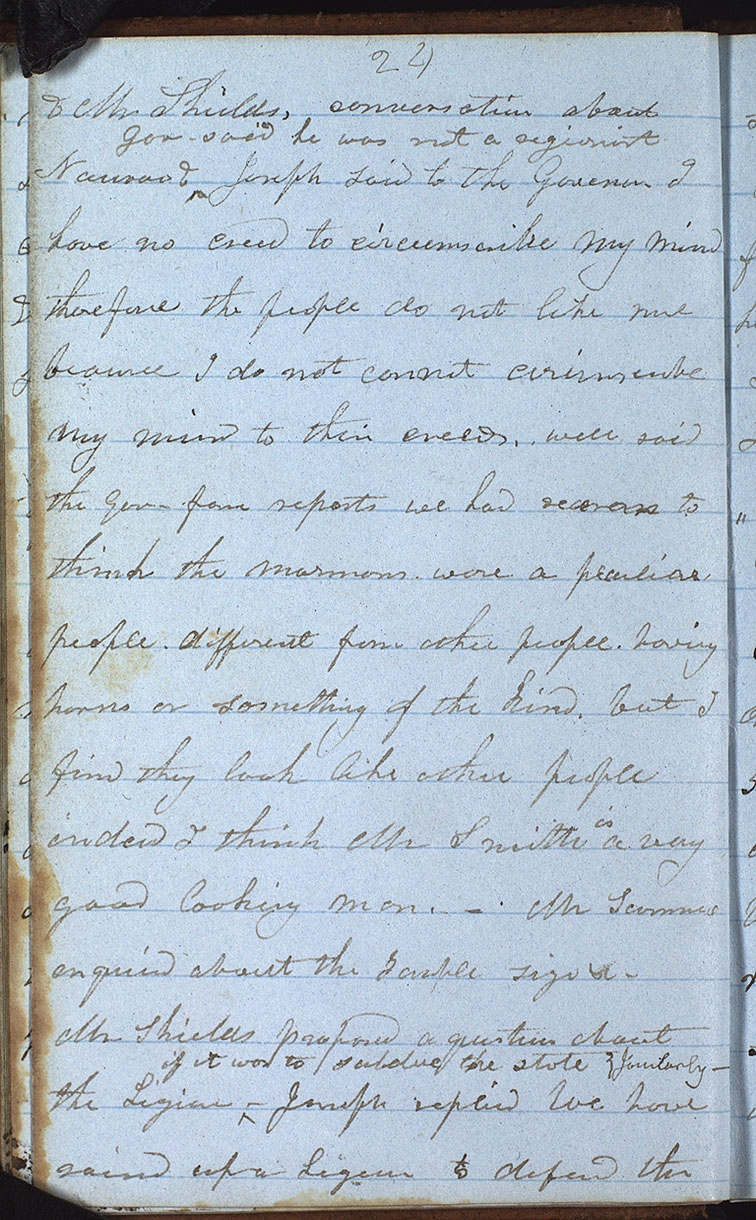 24
& Mr Shields, conversation about
Gov- said he was not a regionist
Nauvoo & Joseph said to the Govenor I
have no creed to circumscribe my mind
therefore the people do not like me
because I do not connot circumscribe
my mind to their creeds, well said
the Gov- from reports we had reasons to
think the mormons were a peculiar
people. different from other people. having
horns or something of the kind. but I
find they look like other people
indeed I think Mr Smith is a very
good looking man. - Mr
enquired about the Temple size -
Mr Shields proposed a question about
if it was to subdue the state &
the Ligion - Joseph replied We have
raised up a Ligion to defend the